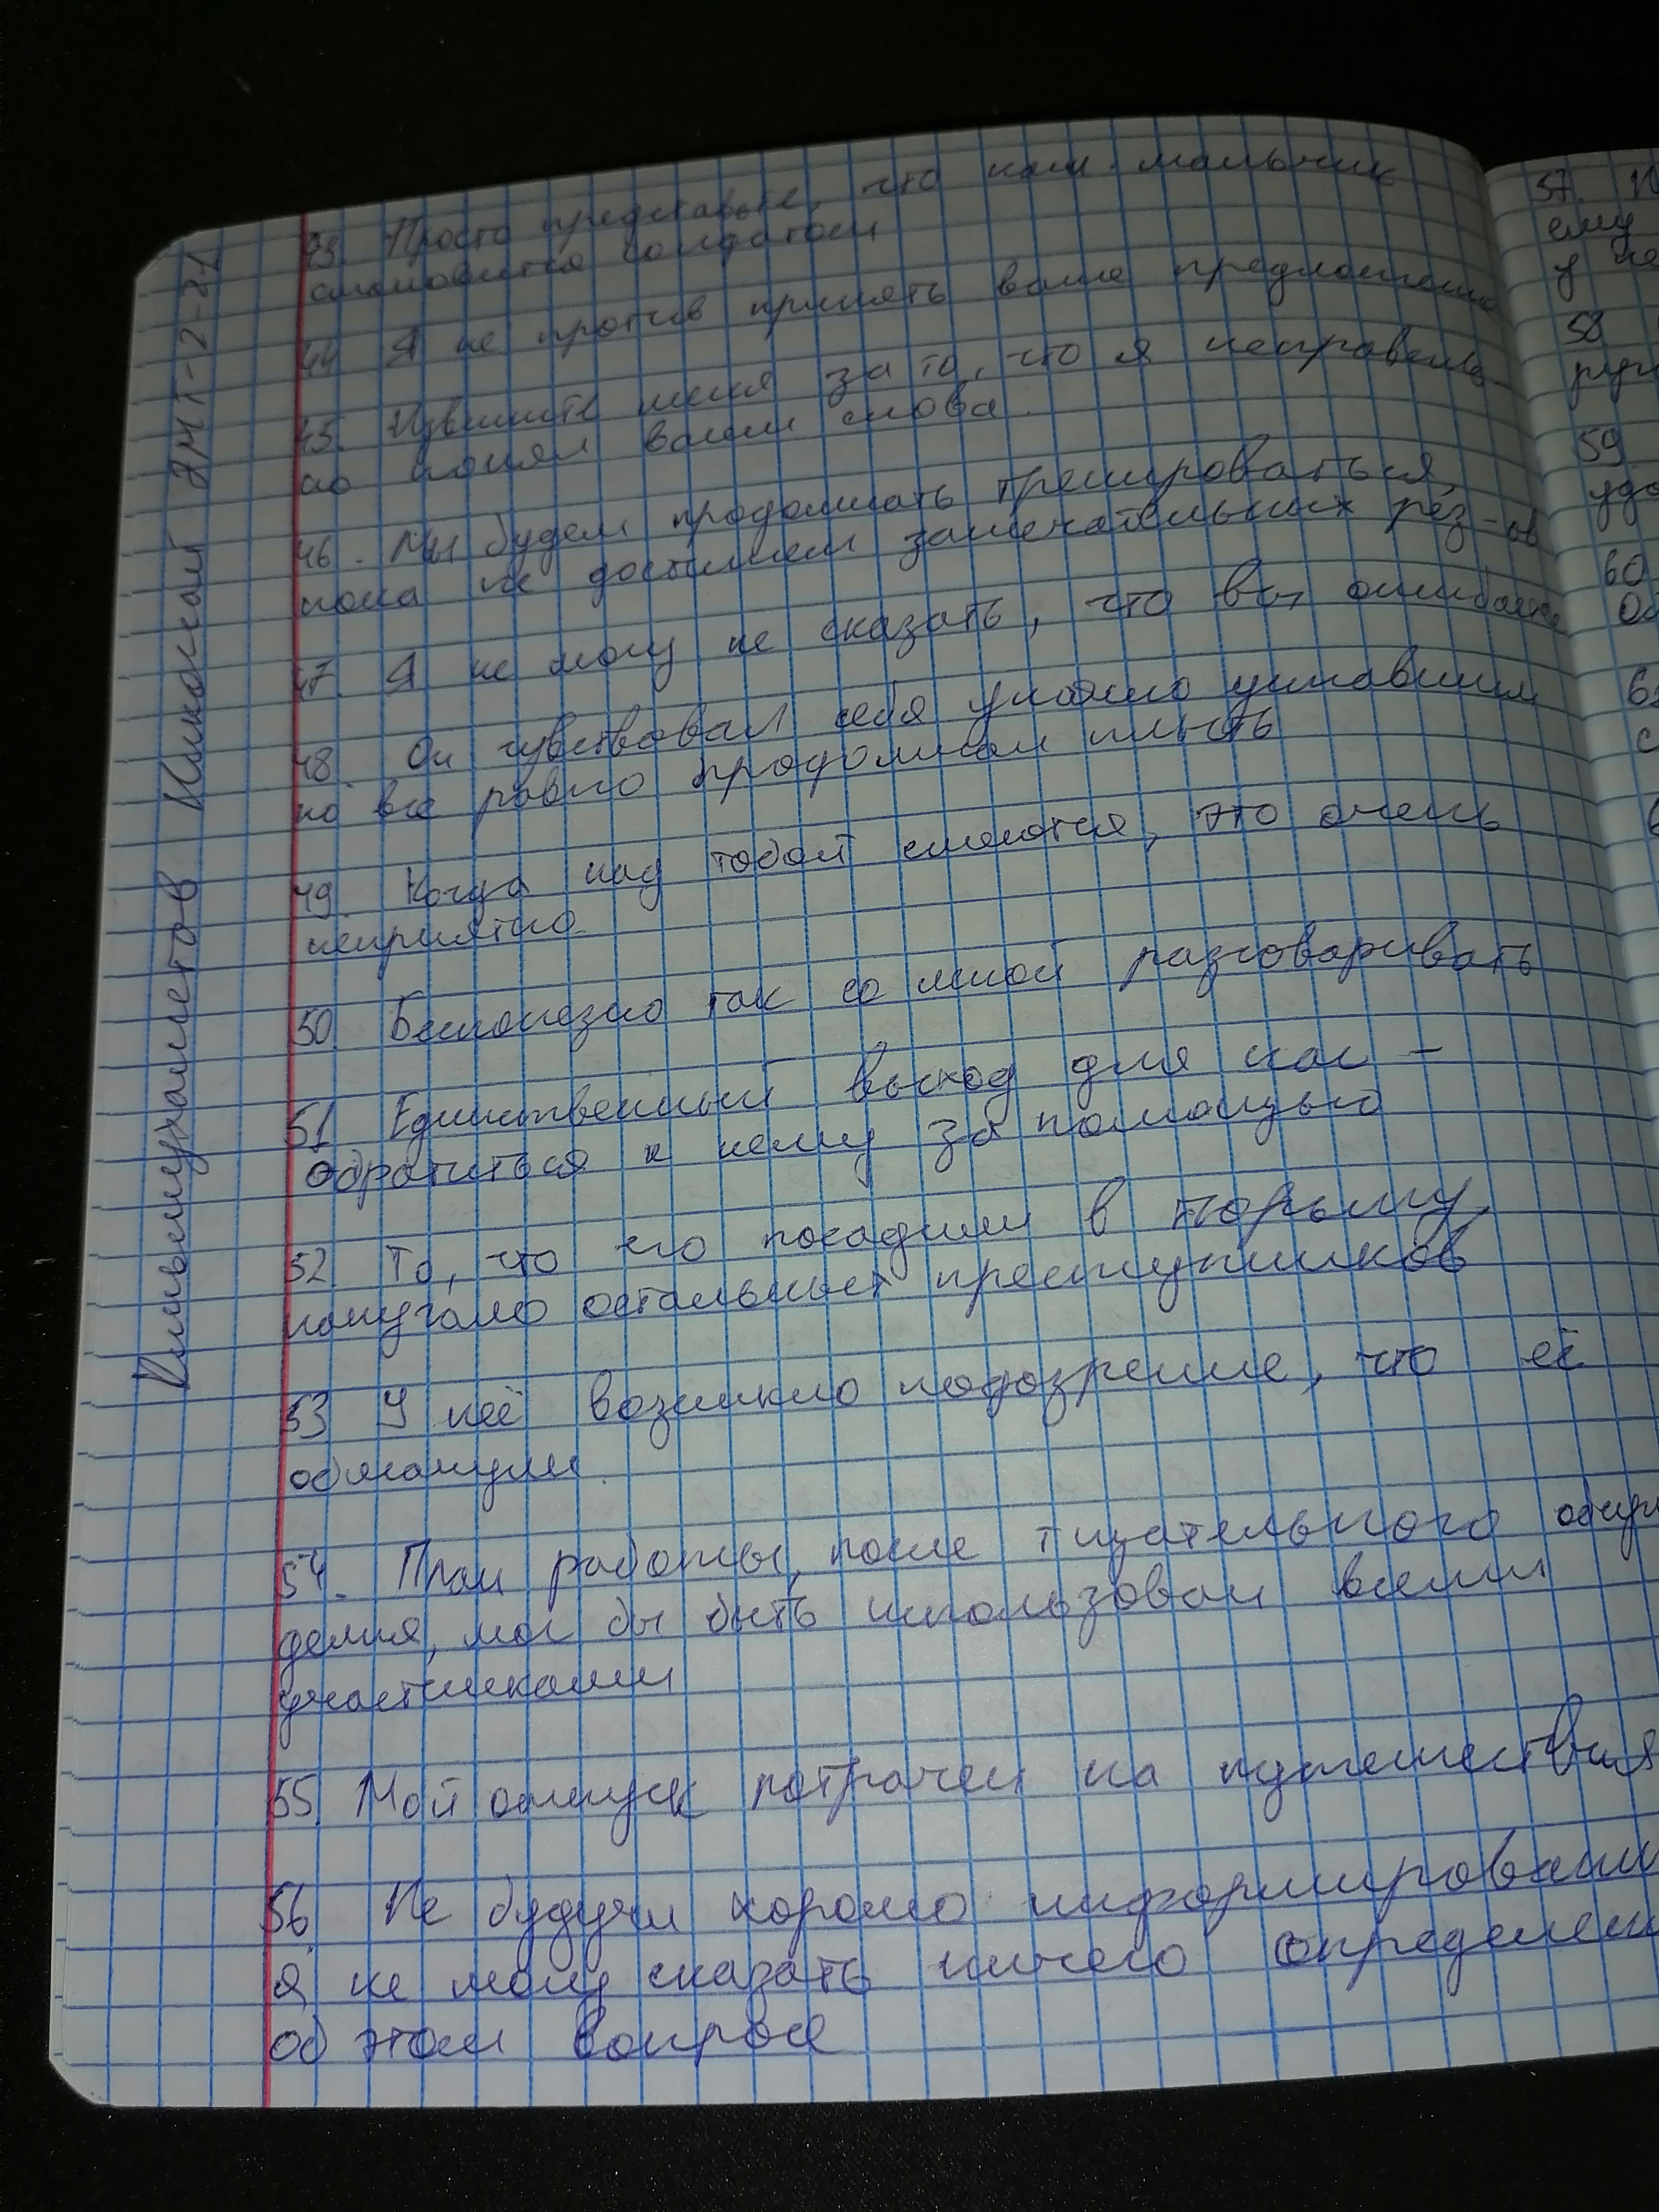 43. Просто представьте, что наш мальчик
становится солдатом
44 Я не против принять ваше предложение
45. Извините меня за то, что я неправиль-
но понял ваши слова.
46. Мы будем продолжать тренироваться,
пока не достигнем замечательных рез-ов
47. Я не могу не сказать, что вы ошибаетесь
48. Он чувствовал себя ужасно уставшим
но все равно продолжал плыть
49. Когда над тобой смеются, это очень
неприятно.
50 Бесполезно так со мной разговаривать
51 Единственный выход для нас –
обратиться к нему за помощью
52 То, что его посадили в тюрьму,
напугало остальных преступников
53 У неё возникло подозрение, что её
обманули.
54. План работы, после тщательного обсуж
дения, мог бы быть использован всеми
участниками
55. Мой отпуск потрачен на путешествия
56 Не будучи хорошо информирован
я не могу сказать ничего определен
об этом вопросе
Кильмухаметов Николай ЭМТ-2-21
57.
ему
у не
58
руч
59
удо
60
Об